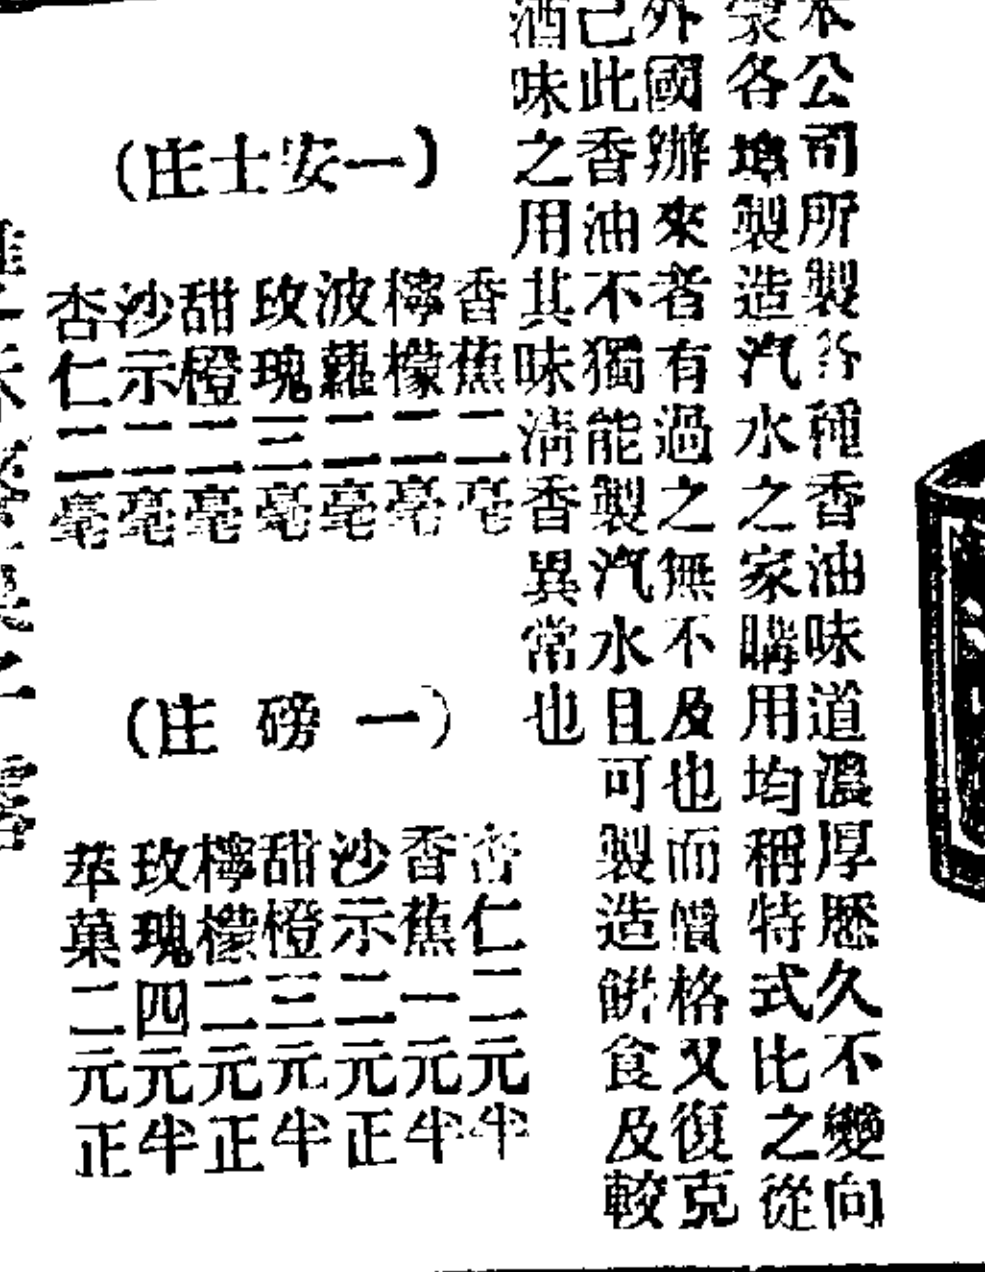 本公司所製各種香油味道濃厚歷久不變向
蒙各埠製造汽水之家購用均稱特式比之從
外國辦來者有過之無不及也而價格又復克
己此香油不獨能製汽水且可製造餅食及較
酒味之用其味淸香異常也
(一安士庄)
香蕉二毫
檸檬二毫
波蘿二毫
玫瑰三毫
甜橙二毫
沙示二毫
杏仁二毫
(一磅庄)
杏仁二元半
香蕉一元半
沙示二元正
甜橙三元半
檸檬二元正
玫瑰四元半
苹菓二元正